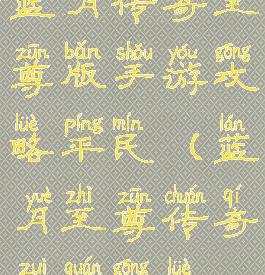 蓝月传奇至
zūn bǎn shǒu yóu gōng
尊版手游攻
lüè píng mín lán
略平民（蓝
yuè zhì zūn chuán qí
月至尊传奇
zuì quán gōng lüè